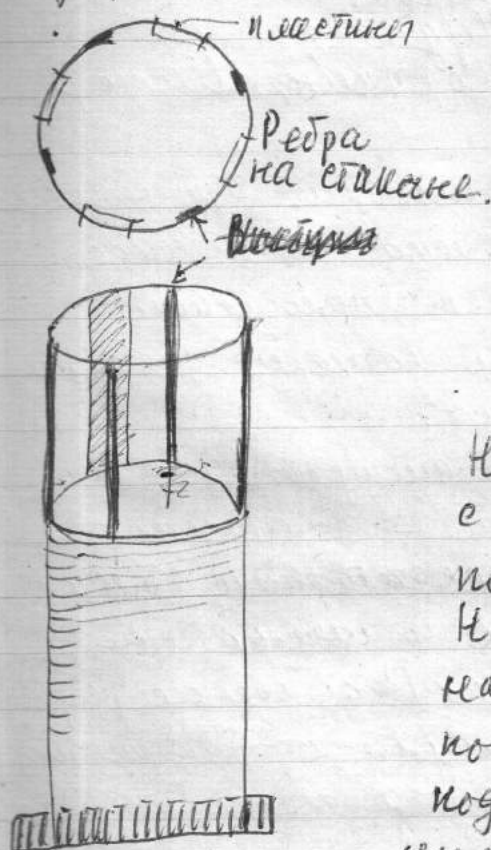 пластины
Ребра
на стакане.
Н
с
по
Н
на
по
под